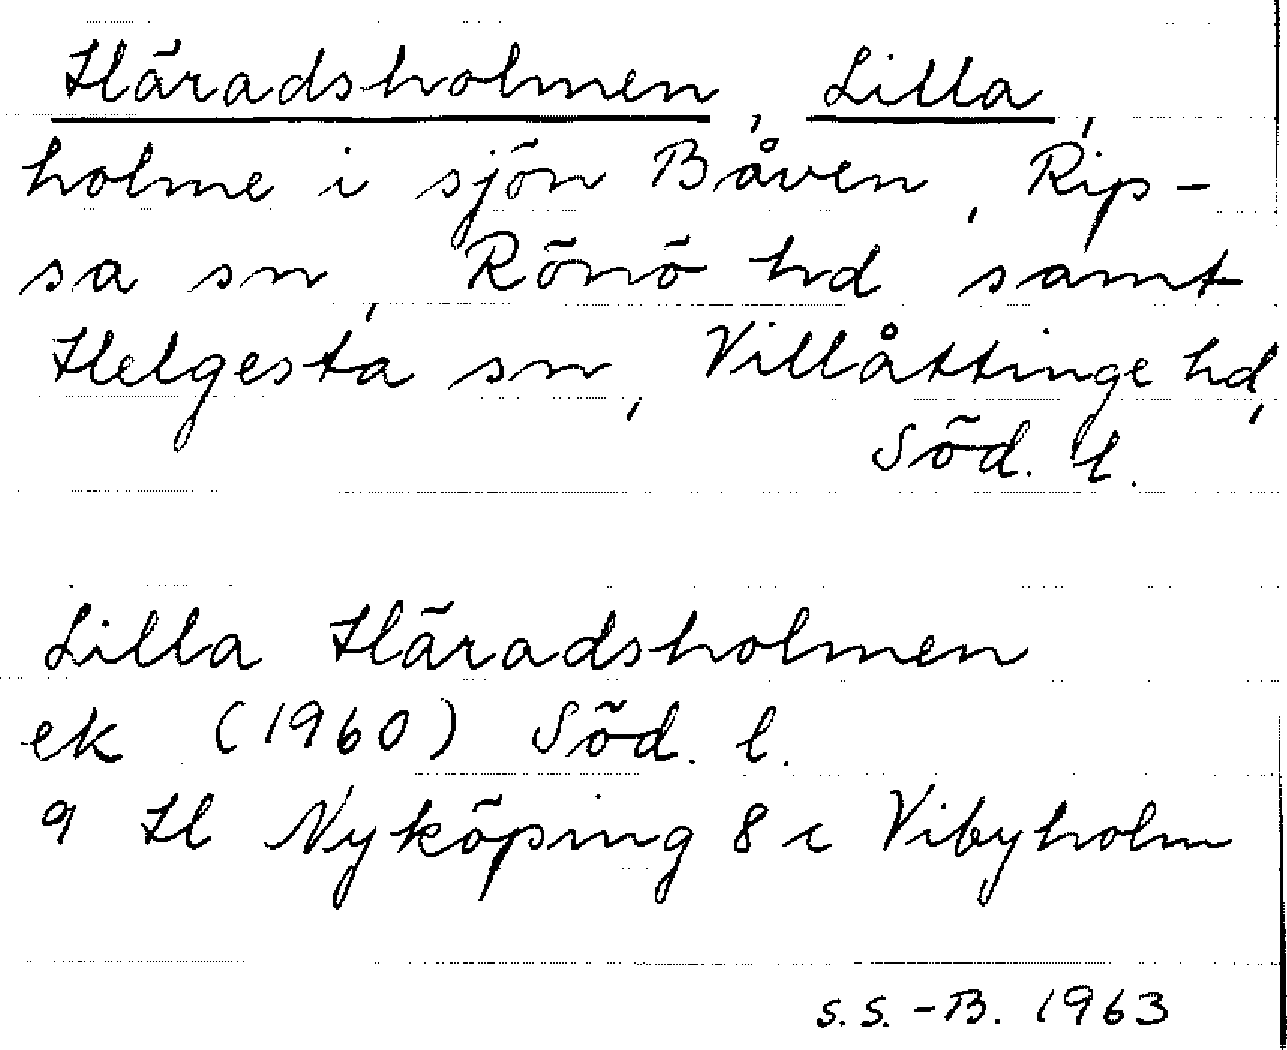 Häradsholmen, Lilla,
holme i sjön Båven, Rip-
sa sn, Rönö hd samt
Helgesta sn, Villåttinge hd,
Söd. l.
Lilla Häradsholmen
ek (1960) Söd. l.
9 H Nyköping 8 c Vibyholm
S.S.-B. 1963